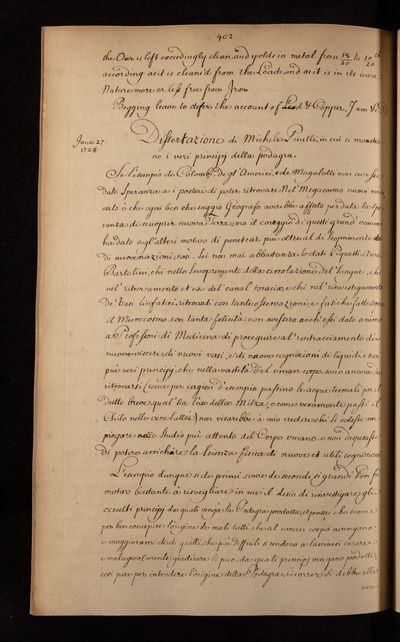 402
the Oar is left exceedingly clean and yields in metal from 18/20 to
according as it is clean'd from the Loads and as it is in its own
Nature more or less free from Iron
Begging leave to defer the account of Lead & Copper. I am &c
June 27. 1728
Dissertazione di Michele Pinelli, in cui si mostra
no i veri principj della podagra.
Se l'esempio de Colombi, de gl'Americi, e de Magalotti non avesse
dato Speranza a i posteri di poter ritrovare Nel Megacosmo nuovi
o che ogni ben che saggio Geografo avrebbe affatto perduta la spe
ranza di scuoprir nuove Terre, ma il coraggio di questi grand' uomini
ha dato agl'altri motivo di penetrar piu oltre al discoprimento
di nuove nazioni; così, se non mai abbastanza lodati Piquetti,
Bartolini, chi nello scuoprimento della circolazione del Sangue, chi
nel' ritrovamento et uso del canal toracico, e chi nel' investigamento
De' Vasi linfatici, ritrovati con tante osservazioni, e fatiche
il Microcosmo, con tanta felicità non avessero anch'essi dato animo
a Professori di Medicina di proseguire al' rintracciamento di
nuove viscere, di nuovi vasi, e di nuove cognizioni di liquidi, e
più veri principj; che nella vastità del uman corpo sono ancora da
ritrovarsi (come per cagion d'esempio passino le acque termali per
Dutto breve, qual ha l'uso della Milza, e come veramente passi il
Chilo nelle vene lattee) non vi sarebbe a mio credere chi si volesse im
piegare nello Studio più attento del Corpo umano, e non disperasse
di potere arrichire la scienza fisica di nuove et utili cognizioni
L'esempio dunque si de primi, come de secondi si grandi Eroi fu
motivo bastante à risvegliare in me il desio di rinvestigare gli
occulti principj da quali venga la Podagra prodotta, et pensai che sicome
per ben concepire l'origine de mali tutti, che al uman corpo avengono
e maggiormente di quelli, che più difficili si rendono a lasciarsi curare
e malagevolmente giudicare si può, da quali principj vengano prodotti,
così pure per intendere l'origine della Podagra ricorrer si debba alle